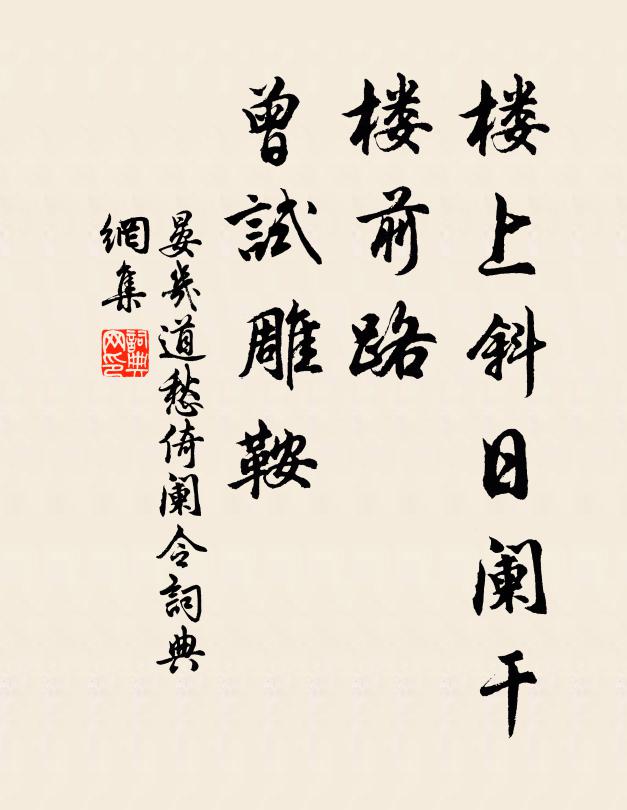 楼上斜日阑干
楼前路
曾試雕鞍
晏幾道愁倚阑令詞典
網集
詞典网印